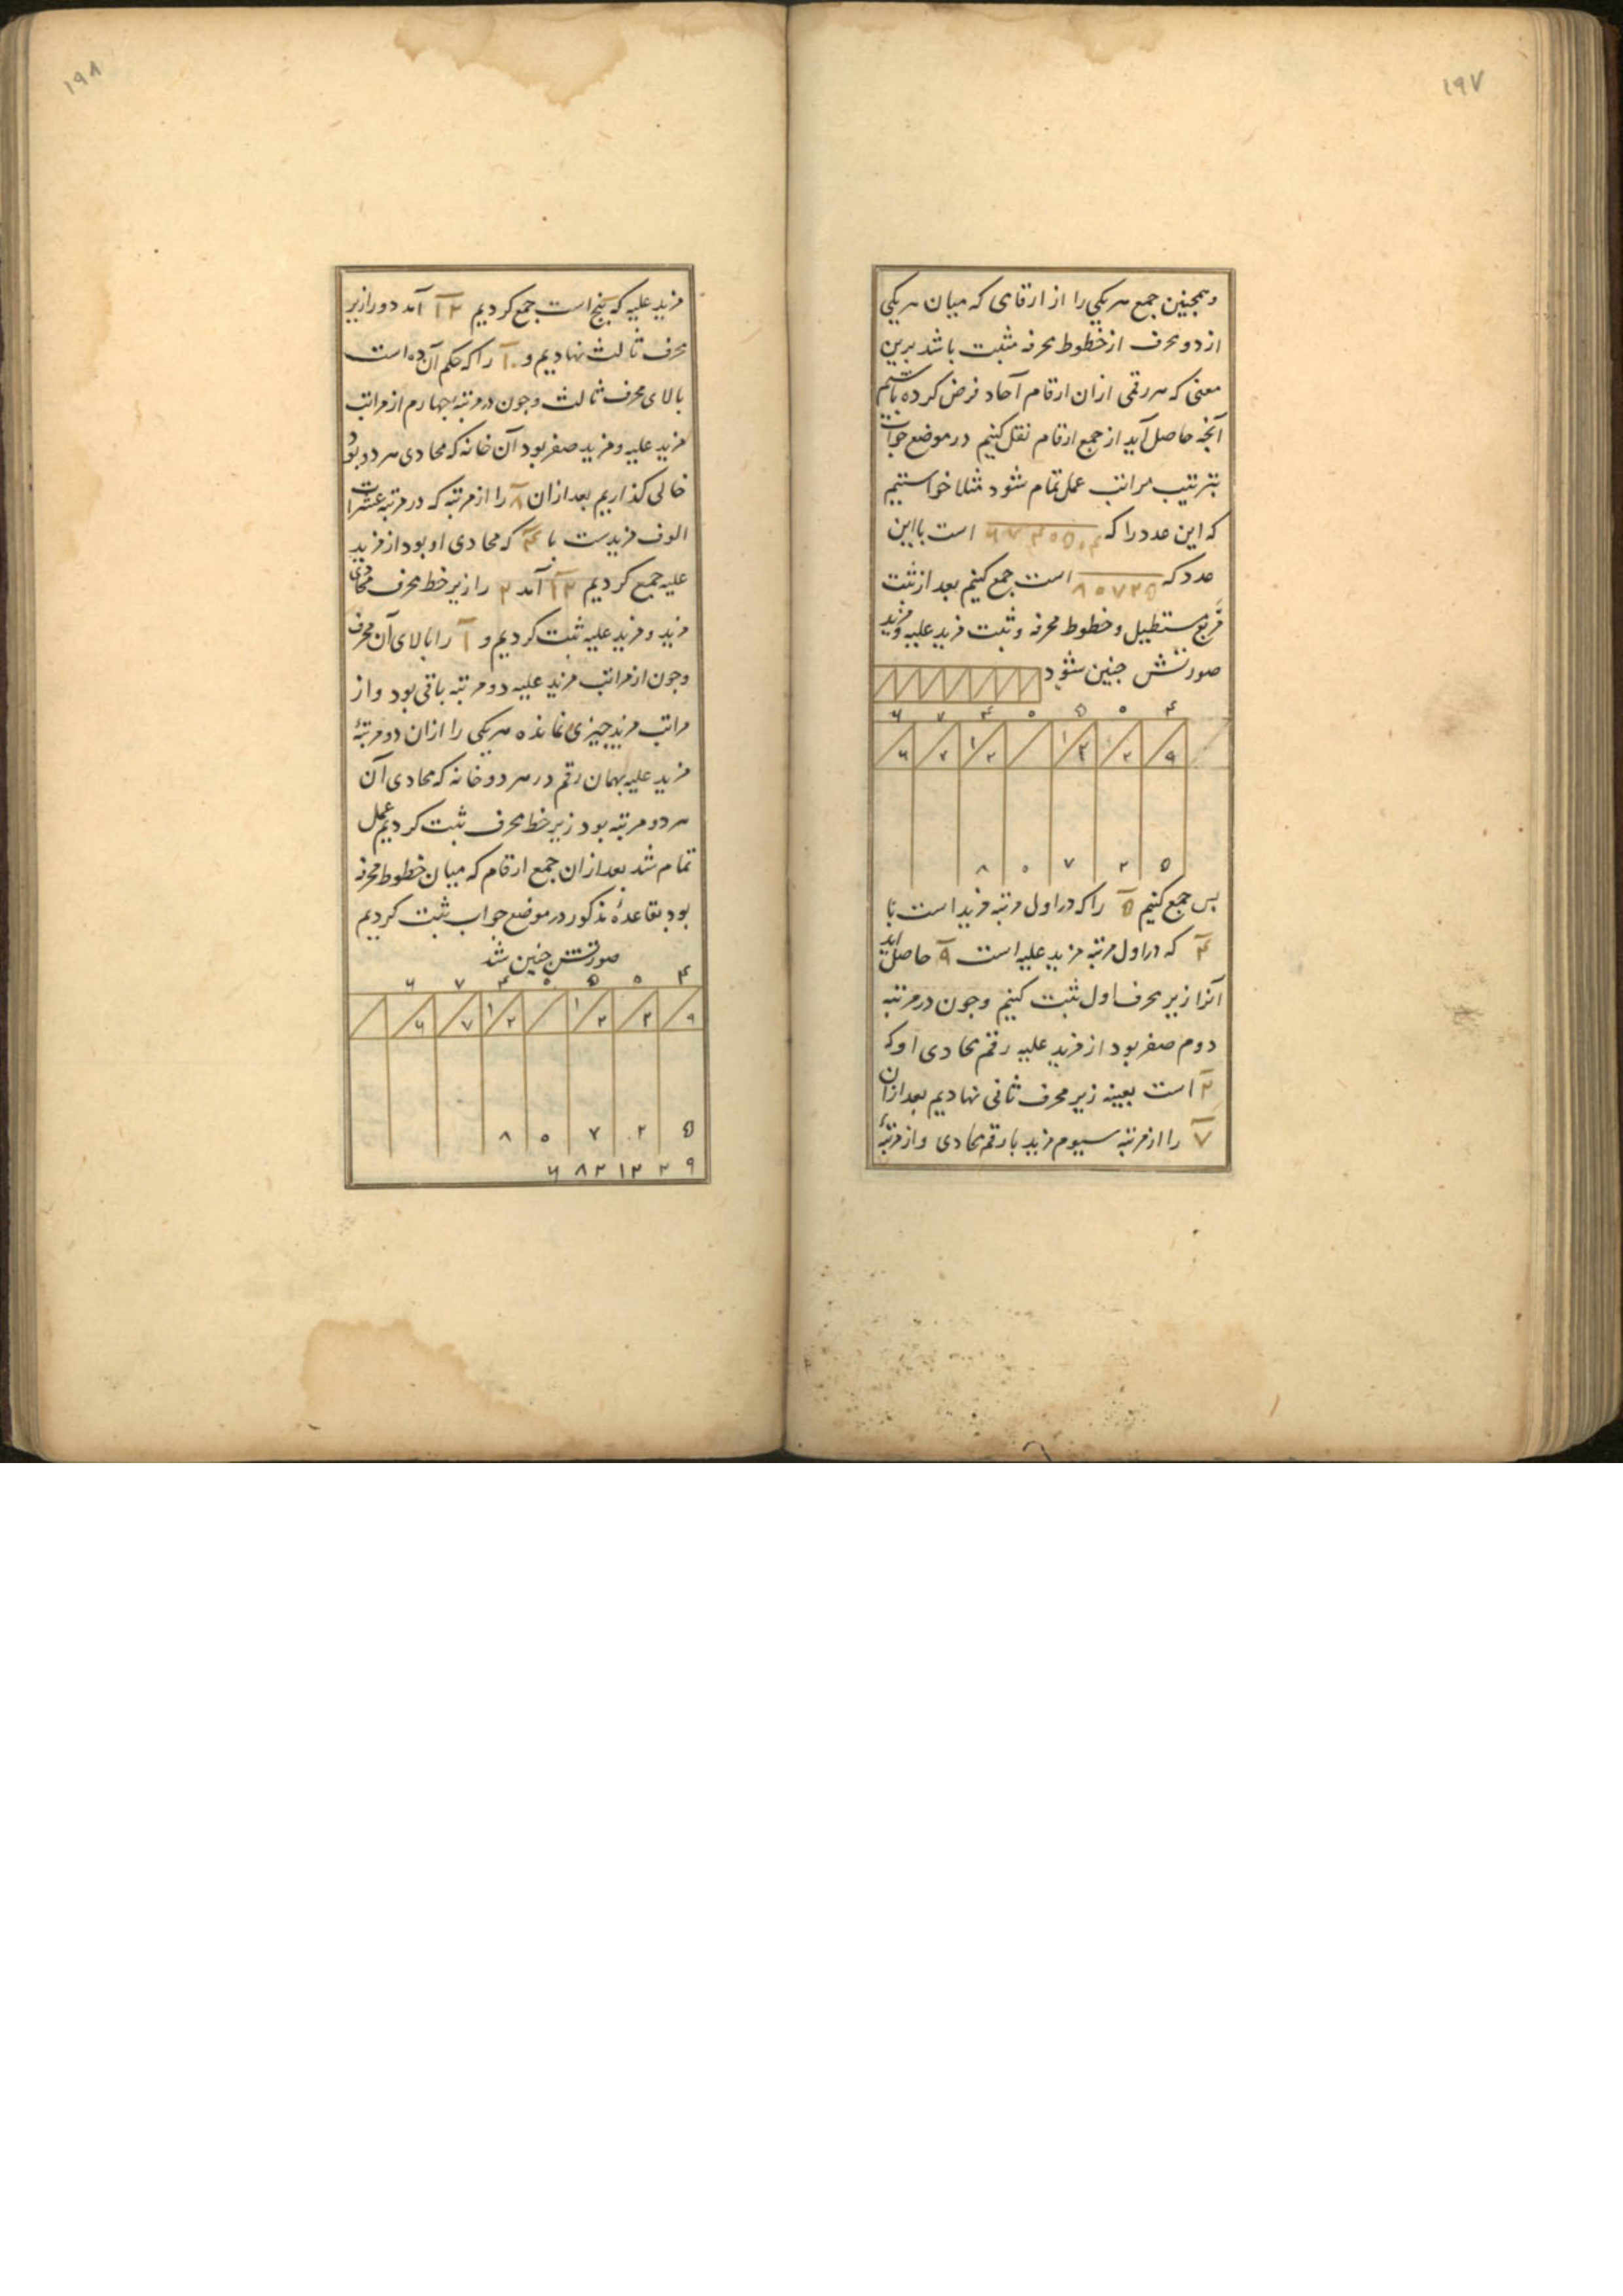 ۱۹۷
وهمچنین جمع هریکی را از ارقامی که میان هریکی
از دو محرف از خطوط محرفه مثبت باشد برین
معنی که هر رقمی ازان ارقام آحاد فرض کرده باشیم
آنچه حاصل آید از جمع ارقام نقل کنیم در موضع جواب
بترتیب مراتب عمل تمام شود مثلا خواستیم
که این عدد را که ۶۷۴۰۵۰۴ است با این
عدد که ۸۰۷۲۵ است جمع کنیم بعد از ثبت
مربع مستطیل و خطوط محرفه و ثبت مزید علیه و مزید
صورتش چنین شود
۶ ۷ ۴ ۰ ۵ ۰ ۴
۶ ۷ ۱ ۲ ۱ ۲ ۲ ۹
۸ ۰ ۷ ۲ ۵
پس جمع کنیم ۵ را که در اول مرتبه مزید است با
۴ که در اول مرتبه مزید علیه است ۹ حاصل آید
آنرا زیر محرف اول ثبت کنیم و چون در مرتبه
دوم صفر بود از مزید علیه رقم محاذی او که
۲ است بعینه زیر محرف ثانی نهادیم بعد ازان
۷ را از مرتبه سیوم مزید با رقم محاذی و از مرتبهٔ
۱۹۸
مزید علیه که پنج است جمع کردیم ۱۲ آمد دو را زیر
محرف ثالث نهادیم و ۱ را که حکم آن ده است
بالای محرف ثالث و چون در مرتبه چهارم از مراتب
مزید علیه و مزید صفر بود آن خانه که محاذی هر دو بود
خالی گذاریم بعد ازان ۸ را از مرتبه که در مرتبه عشرات
الوف مزیدست با ۴ که محاذی او بود از مزید
علیه جمع کردیم ۱۲ آمد ۲ را زیر خط محرف محاذی
مزید و مزید علیه ثبت کردیم و ۱ را بالای آن محرف
و چون از مراتب مزید علیه دو مرتبه باقی بود و از
مراتب مزید چیزی نمانده هریکی را ازان دو مرتبهٔ
مزید علیه بهمان رقم در هر دو خانه که محاذی آن
هر دو مرتبه بود زیر خط محرف ثبت کردیم عمل
تمام شد بعد ازان جمع ارقام که میان خطوط محرفه
بود بقاعدهٔ مذکور در موضع جواب ثبت کردیم
صورتش چنین شد
۶ ۷ ۴ ۰ ۵ ۰ ۴
۶ ۷ ۱ ۲ ۱ ۲ ۲ ۹
۸ ۰ ۷ ۲ ۵
۶ ۸ ۲ ۱ ۲ ۲ ۹